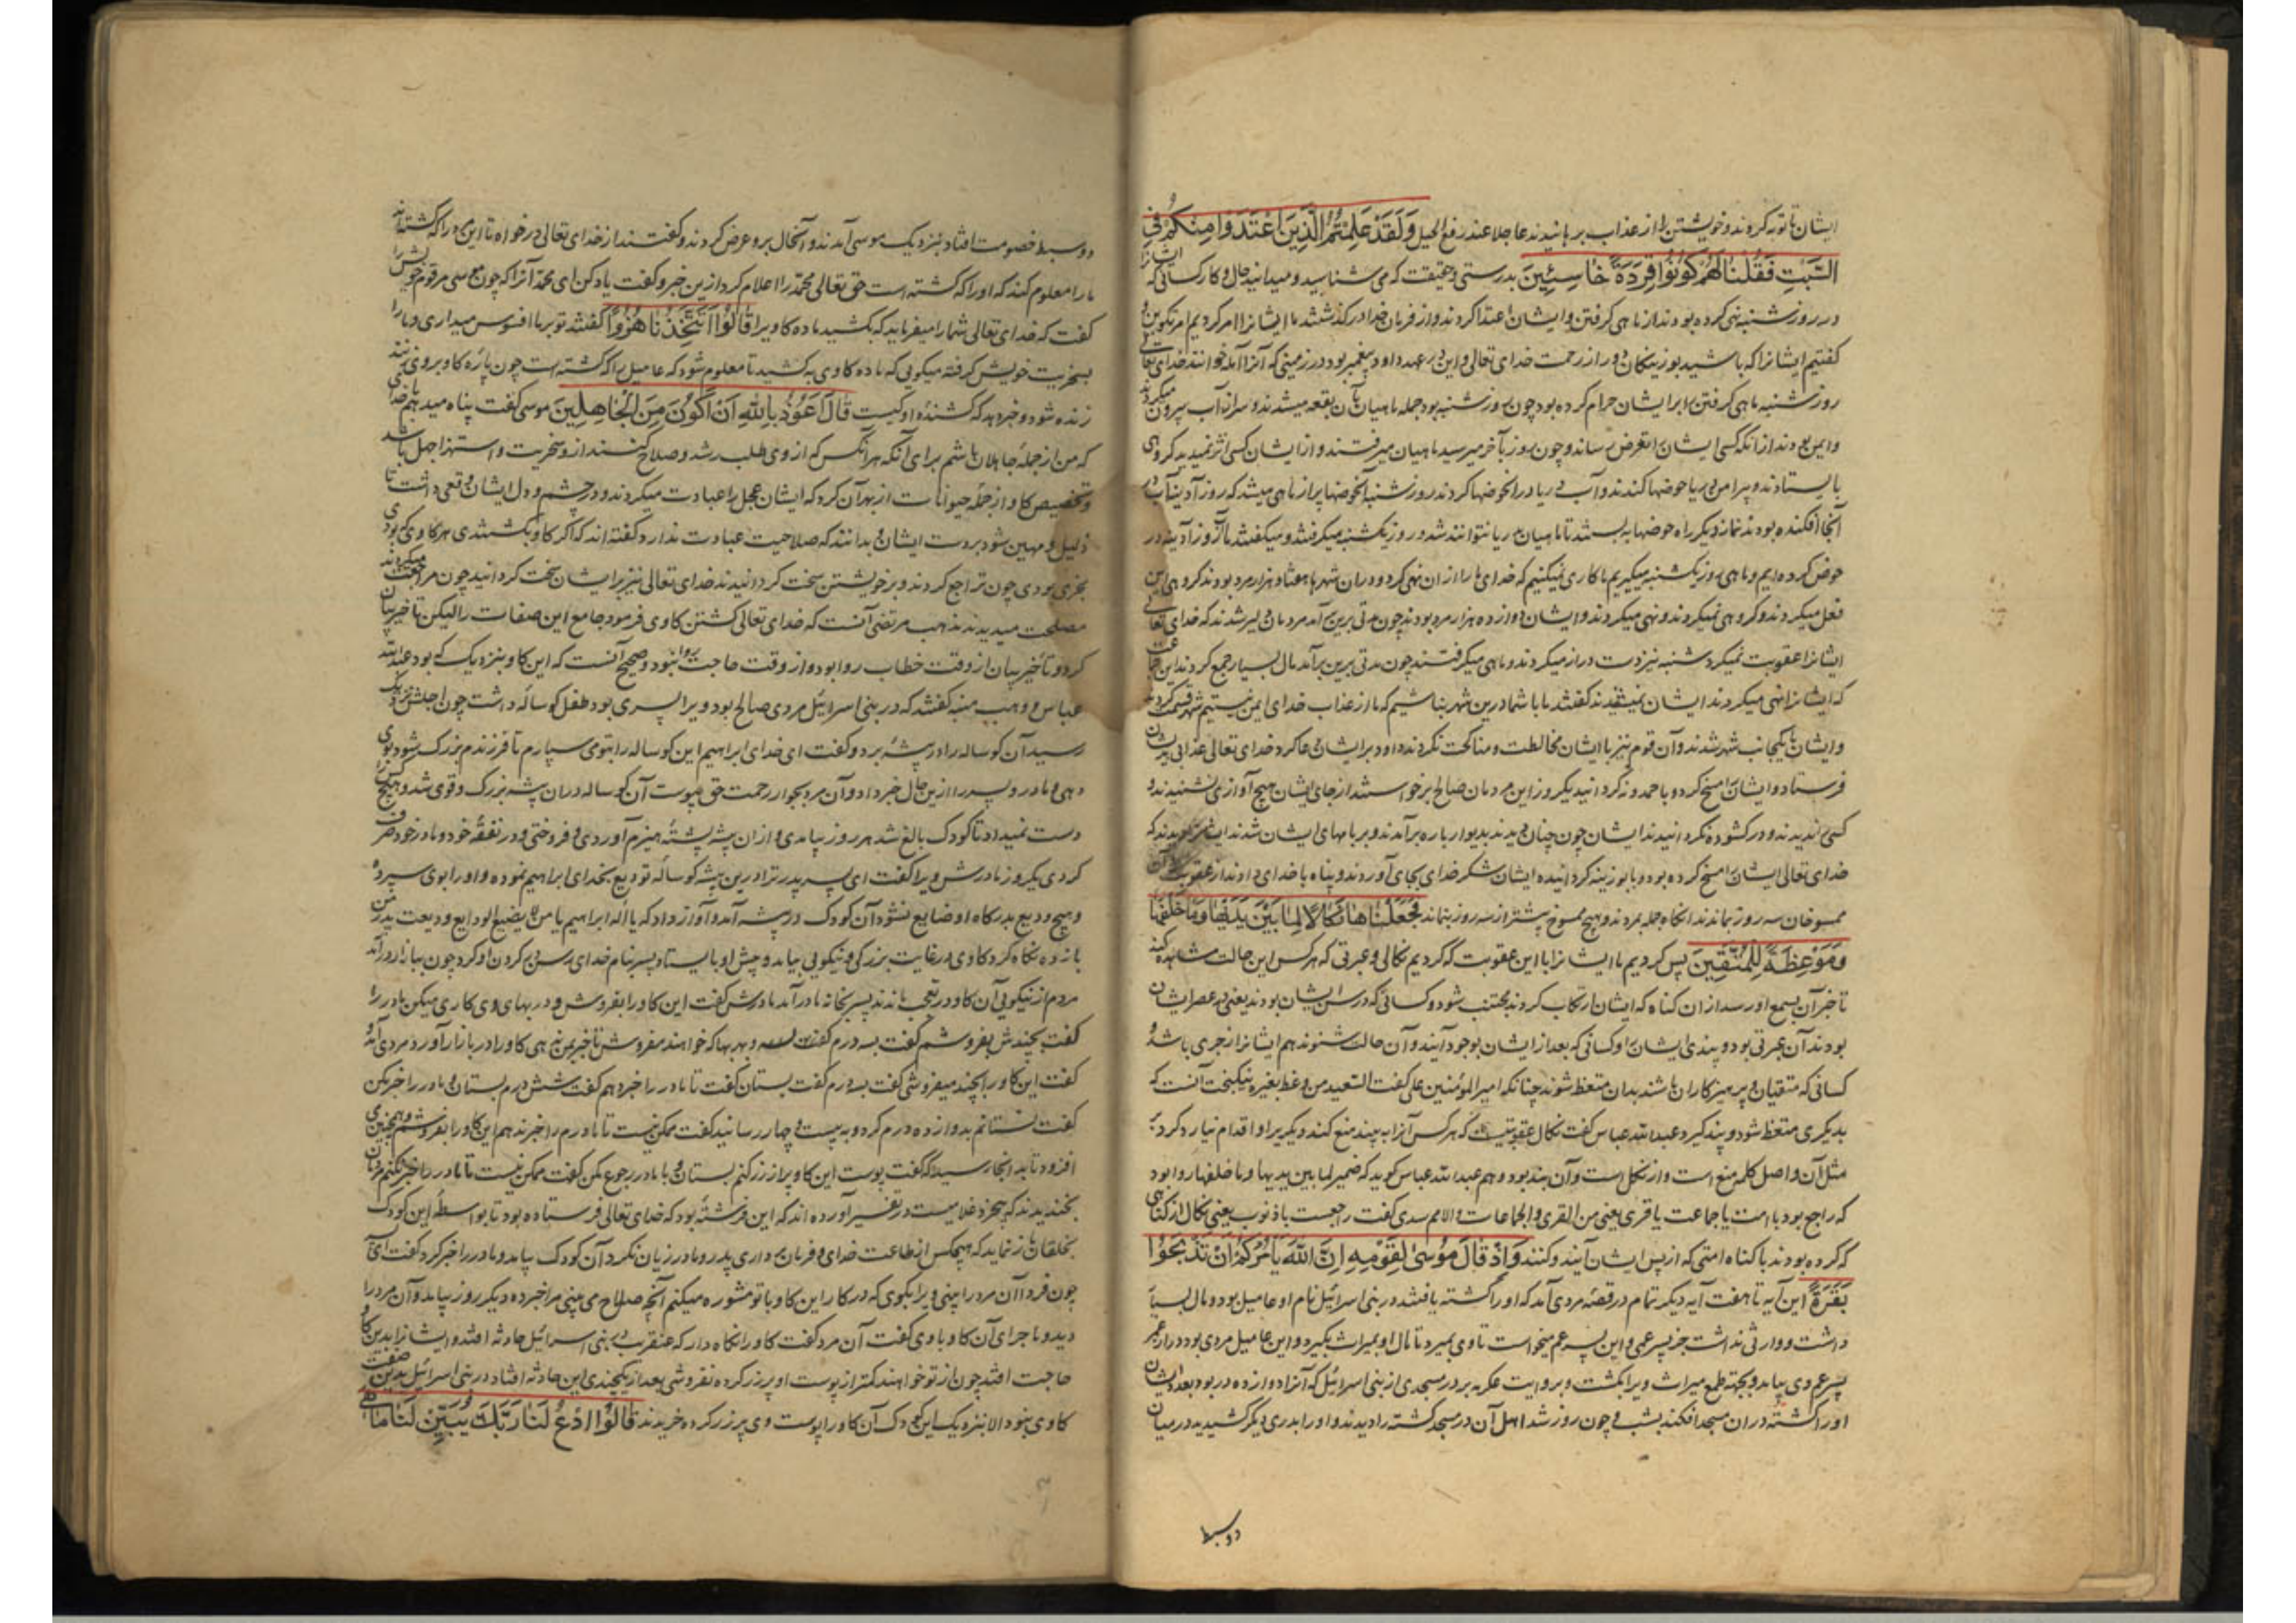 ایشان تا توبه کردند و خویشتن را از عذاب برهانیدند عاجلا عند رفع الجبل وَلَقَدْ عَلِمْتُمُ الَّذِينَ اعْتَدَوْا مِنْكُمْ فِي
السَّبْتِ فَقُلْنَا لَهُمْ كُونُوا قِرَدَةً خَاسِئِينَ بدرستی و حقیقت که می شناسید و میدانید حال و کار کسانی که ایشانرا
در روز شنبه نهی کرده بودند از ماهی کرفتن و ایشان اعتدا کردند و از فرمان خدا درکذشتند ما ایشانرا امر کردیم امر تکوین و
کفتیم ایشانرا که باشید بوزینکان دور از رحمت خدای تعالی و این در عهد داود پیغمبر بود در زمینی که آنرا ایله خوانند خدای تعالی
روز شنبه ماهی کرفتن بر ایشان حرام کرده بود چون روز شنبه بود جمله ماهیان بآن بقعه میشدند و سر از آب بیرون میکردند
و ایمن بودند از آنکه کسی ایشانرا تعرض رساند و چون روز بآخر میرسید ماهیان میرفتند و از ایشان کسی اثر نمیدید کروهی
بایستادند و پیرامن دریا حوضها کندند و آب دریا در آن حوضها کردند روز شنبه آن حوضها پر از ماهی میشد که روز آدینه آب در
آنجا افکنده بودند نماز دیکر راه حوضها به بستند تا ماهیان بدریا نتوانند شد و روز یکشنبه میکرفتند و میکفتند ما آنروز آدینه در
حوض کرده ایم و ماهی روز یکشنبه میکیریم ما کاری نمیکنیم که خدای ما را از ان نهی کرد و در ان شهر هفتاد هزار مرد بودند کروهی این
فعل میکردند و کروهی نمیکردند و نهی میکردند و ایشان دوازده هزار مرد بودند چون مدتی برین برآمد مردمان دلیر شدند که خدای تعالی
ایشانرا عقوبت نمیکرد شنبه نیز دست دراز میکردند و ماهی میکرفتند چون مدتی برین برآمد مال بسیار جمع کردند این جماعت
که ایشانرا نهی میکردند ایشان نمیشنیدند کفتند ما با شما درین شهر نباشیم که ما از عذاب خدای ایمن نیستیم شهر قسمت کردند
و ایشان بیکجانب شهر شدند و آن قوم نیز با ایشان مخالطت و مناکحت نکردند داود بر ایشان دعا کرد خدای تعالی عذابی بر ایشان
فرستاد و ایشانرا مسخ کرد و باحمدونه کردانید یکروز این مردمان صالح برخواستند از جای ایشان هیچ آوازی نشنیدند و
کسی ندیدند و در کشوده نکردانیدند ایشان چون چنان دیدند بدیوار باره برآمدند و بر بامهای ایشان شدند ایشانرا دیدند که
خدای تعالی ایشانرا مسخ کرده بود و با بوزینه کردانیده ایشان شکر خدای بجای آوردند و پناه با خدای دادند از عقوبت آن
ممسوخان سه روز بماندند آنکاه جمله بمردند و هیچ ممسوخ بیشتر از سه روز بنماند فَجَعَلْنَاهَا نَكَالًا لِمَا بَيْنَ يَدَيْهَا وَمَا خَلْفَهَا
وَمَوْعِظَةً لِلْمُتَّقِينَ پس کردیم ما ایشانرا با این عقوبت که کردیم نکالی و عبرتی که هر کس این حالت مشاهده کند
تا خبر آن بسمع او رسد از ان کناه که ایشان ارتکاب کردند مجتنب شود و کسانی که در پس ایشان بودند یعنی در عصر ایشان
بودند آن عبرتی بود و پندی ایشانرا و کسانی که بعد از ایشان بوجود آیند و آن حالت شنوند هم ایشانرا زجری باشد و
کسانی که متقیان و پرهیزکاران باشند بدان متعظ شوند چنانکه امیر المؤمنین علی کفت السعید من وعظ بغیره نیکبخت آنست که
بدیکری متعظ شود و پند کیرد عبدالله عباس کفت نکال عقوبتیست که هر کس آنرا به بیند منع کند دیکر برا و اقدام نیارد کرد بر
مثل آن و اصل کلمه منع است و از نکل است و آن بند بود و هم عبدالله عباس کوید که ضمیر لما بین یدیها و ما خلفها روا بود
که راجع بود با امت یا جماعت یا قری یعنی من القری و الجماعات و الامم سدی کفت راجعست با ذنوب یعنی نکال از کناهی
که کرده بودند با کناه امتی که از پس ایشان آیند و کنند وَإِذْ قَالَ مُوسَى لِقَوْمِهِ إِنَّ اللَّهَ يَأْمُرُكُمْ أَنْ تَذْبَحُوا
بَقَرَةً این آیه تا هفت آیه دیکر تمام در قصه مردی آمد که او را کشته یافتند در بنی اسرائیل نام او عامیل بود و مال بسیار
داشت و وارثی نداشت جز پسر عمی و این پسر عم میخواست تا وی بمیرد تا مال او بمیراث بکیرد و این عامیل مردی بود دراز عمر
پسر عم وی بیامد و بجهة طمع میراث ویرا بکشت و بروایت عکرمه بر در مسجدی از بنی اسرائیل که آنرا دوازده در بود بعد ایشان
او را کشته در ان مسجد افکند بشب و چون روز شد اهل آن در مسجد کشته را دیدند و او را بدری دیکر کشیدید در میان
دو سبط
دو سبط خصومت افتاد بنزدیک موسی آمدند و آنحال برو عرض کردند و کفتند از خدای تعالی درخواه تا این مرد را که کشته اند
ما را معلوم کند که او را که کشته است حق تعالی محمد را اعلام کرد ازین خبر و کفت یاد کن ای محمد آنرا که چون موسی مر قوم خویش را
کفت که خدای تعالی شما را میفرماید که بکشید ماده کاو را قَالُوا أَتَتَّخِذُنَا هُزُوًا کفتند تو بر ما افسوس میداری و ما را
بسخریت خویش کرفته میکویی که ماده کاوی بکشید تا معلوم شود که عامیل را که کشته است چون پاره کاو بر وی زنند
زنده شود و خبر دهد که کشنده او کیست قَالَ أَعُوذُ بِاللَّهِ أَنْ أَكُونَ مِنَ الْجَاهِلِينَ موسی کفت پناه میدهم با خدای
که من از جمله جاهلان باشم برای آنکه هر آنکس که از وی طلب رشد و صلاح کنند از و سخریت و استهزا جهل باشد
و تخصیص کاو از جمله حیوانات از بهر آن کرد که ایشان عجل را عبادت میکردند و در چشم و دل ایشان وقعی داشت تا
ذلیل و مهین شود بر دست ایشان و بدانند که صلاحیت عبادت ندارد کفته اند که اکر کاو بکشتندی هر کاوی که بودی
مجزی بودی چون تراجع کردند و بر خویشتن سخت کردانیدند خدای تعالی نیز بر ایشان سخت کردانید چون مراجعت میکردند
مصلحت میدیدند مذهب مرتضی آنست که خدای تعالی کشتن کاوی فرمود جامع این صفات را لیکن تاخیر بیان
کرد و تاخیر بیان از وقت خطاب روا بود و از وقت حاجت روا نبود و صحیح آنست که این کاو بنزدیک که بود عبدالله
عباس و وهب منبه کفتند که در بنی اسرائیل مردی صالح بود و ویرا پسری بود طفل کوساله داشت چون اجلش نزدیک
رسید آن کوساله را در بیشه برد و کفت ای خدای ابراهیم این کوساله را بتو می سپارم تا فرزندم بزرک شود بوی
دهی و مادر و پسر را ازین حال خبر داد و آن مرد بجوار رحمت حق پیوست آن کوساله در ان بیشه بزرک و قوی شد و هیچ کس را
دست نمیداد تا کودک بالغ شد هر روز بیامدی و از ان بیشه پشته هیزم آوردی و فروختی و در نفقه خود و مادر خود صرف
کردی یکروز مادرش ویرا کفت ای پسر پدر ترا درین بیشه کوساله تودیع بخدای ابراهیم نموده و او را بوی سپرده
و هیچ ودیع بدرکاه او ضایع نشود آن کودک در بیشه آمد و آواز داد که یا اله ابراهیم یا من لا یضیع الودایع ودیعت پدر من
باز ده نکاه کرد کاوی در غایت بزرکی و نیکویی بیامد و پیش او بایستاد پسر بنام خدای رسن در کردن او کرد چون ببازار درآمد
مردم از نیکویی آن کاو در تعجب ماندند پسر بخانه مادر آمد مادرش کفت این کاو را بفروش و در بهای وی کاری میکن مادر را
کفت بچندش بفروشم کفت بسه درم کفت و بهر بها که خواهند مفروش تا خبر بمن دهی کاو را در بازار آورد مردی آمد و
کفت این کاو را بچند میفروشی کفت بسه درم کفت بستان کفت تا مادر را خبر دهم کفت شش درم بستان و مادر را خبر مکن
کفت نستانم بدوازده درم کرد و به بیست و چهار رسانید کفت ممکن نیست تا مادرم را خبر ندهم این کاو را نفروشم و همچنین می
افزود تا بدانجا رسید که کفت پوست این کاو پر از زر کنم بستان و با مادر رجوع مکن کفت ممکن نیست تا مادر را خبر نکنم مردمان
بخندیدند که بیخرد غلامیست در تفسیر آورده اند که این فرشته بود که خدای تعالی فرستاده بود تا بواسطه این کودک
بخلقان باز نماید که هیچکس از طاعت خدای و فرمان برداری پدر و مادر زیان نکرد آن کودک بیامد و مادر را خبر کرد کفت ای
چون فردا آن مرد را بینی ویرا بکوی که در کار این کاو با تو مشوره میکنیم آنچه صلاح می بینی مرا خبر ده دیکر روز بیامد و آن مرد را
دید و ماجرای آن کاو با وی کفت آن مرد کفت کاو را نکاه دار که عنقریب در بنی اسرائیل حادثه افتد و ایشانرا بدین کاو
حاجت افتد چون از تو خواهند کمتر از پوست او پر زر کرده نفروشی بعد از یکچندی این حادثه افتاد در بنی اسرائیل بدین صفت
کاوی نبود الا بنزدیک این کودک آن کاو را بپوست وی پر زر کرده خریدند قَالُوا ادْعُ لَنَا رَبَّكَ يُبَيِّنْ لَنَا مَا هِيَ